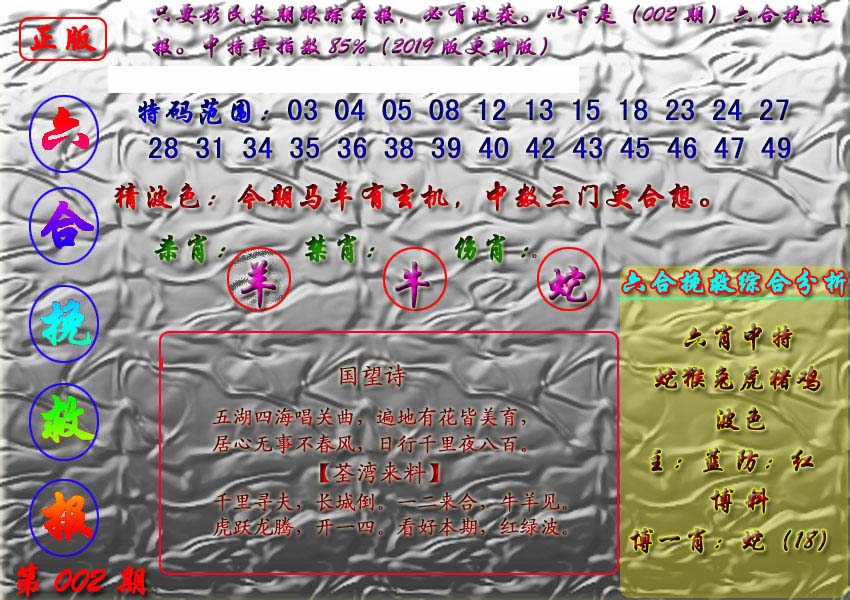 正版
只要彩民长期跟踪本报，必有收获。以下是（002期）六合挽救
报。中特率指数85%（2019版更新版）
六合挽救报
第002期
特码范围：03 04 05 08 12 13 15 18 23 24 27
28 31 34 35 36 38 39 40 42 43 45 46 47 49
猜波色：今期马羊有玄机，中数三门更合想。
杀肖：羊 禁肖：牛 伤肖：蛇
国望诗
五湖四海唱关曲，遍地有花皆美育，
居心无事不春风，日行千里夜八百。
【荃湾来料】
千里寻夫，长城倒。一二来合，牛羊见。
虎跃龙腾，开一四。看好本期，红绿波。
六合挽救综合分析
六肖中特
蛇猴兔虎猪鸡
波色
主：蓝防：红
博料
博一肖：蛇（18）